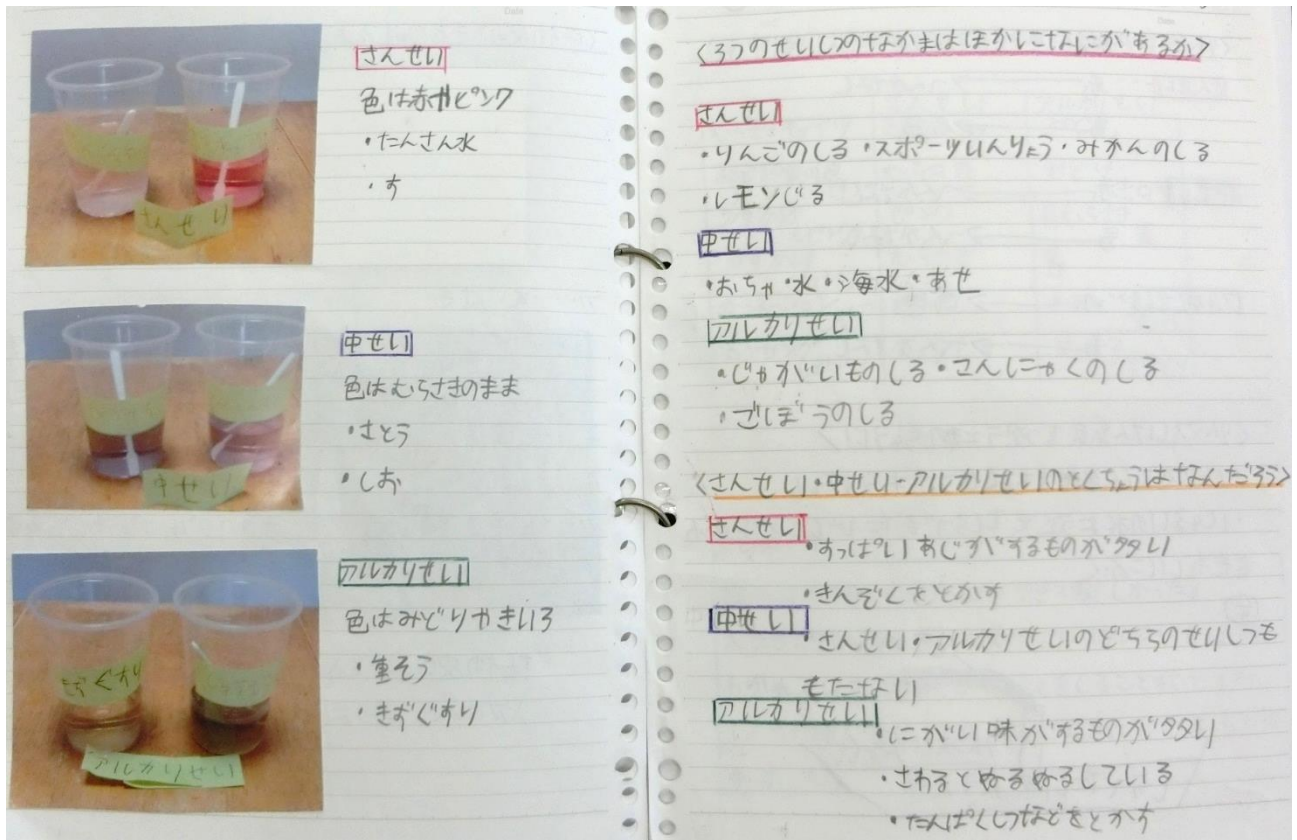 さんせい
色は赤やピンク
・たんさん水
・す
さんせい
中せい
色はむらさきのまま
・さとう
・しお
中せい
アルカリせい
色はみどりやきいろ
・重そう
・きずぐすり
きずぐすり
アルカリせい
<3つのせいしつのなかまはほかになにがあるか>
さんせい
・りんごのしる・スポーツいんりょう・みかんのしる
・レモンじる
中せい
・おちゃ・水・海水・あせ
アルカリせい
・じゃがいものしる・こんにゃくのしる
・ごぼうのしる
<さんせい・中せい・アルカリせいのとくちょうはなんだろう>
さんせい
・すっぱいあじがするものが多い
・きんぞくをとかす
中せい
・さんせい・アルカリせいのどちらのせいしつも
もたない
アルカリせい
・にがい味がするものが多い
・さわるとぬるぬるしている
・たんぱくしつなどをとかす